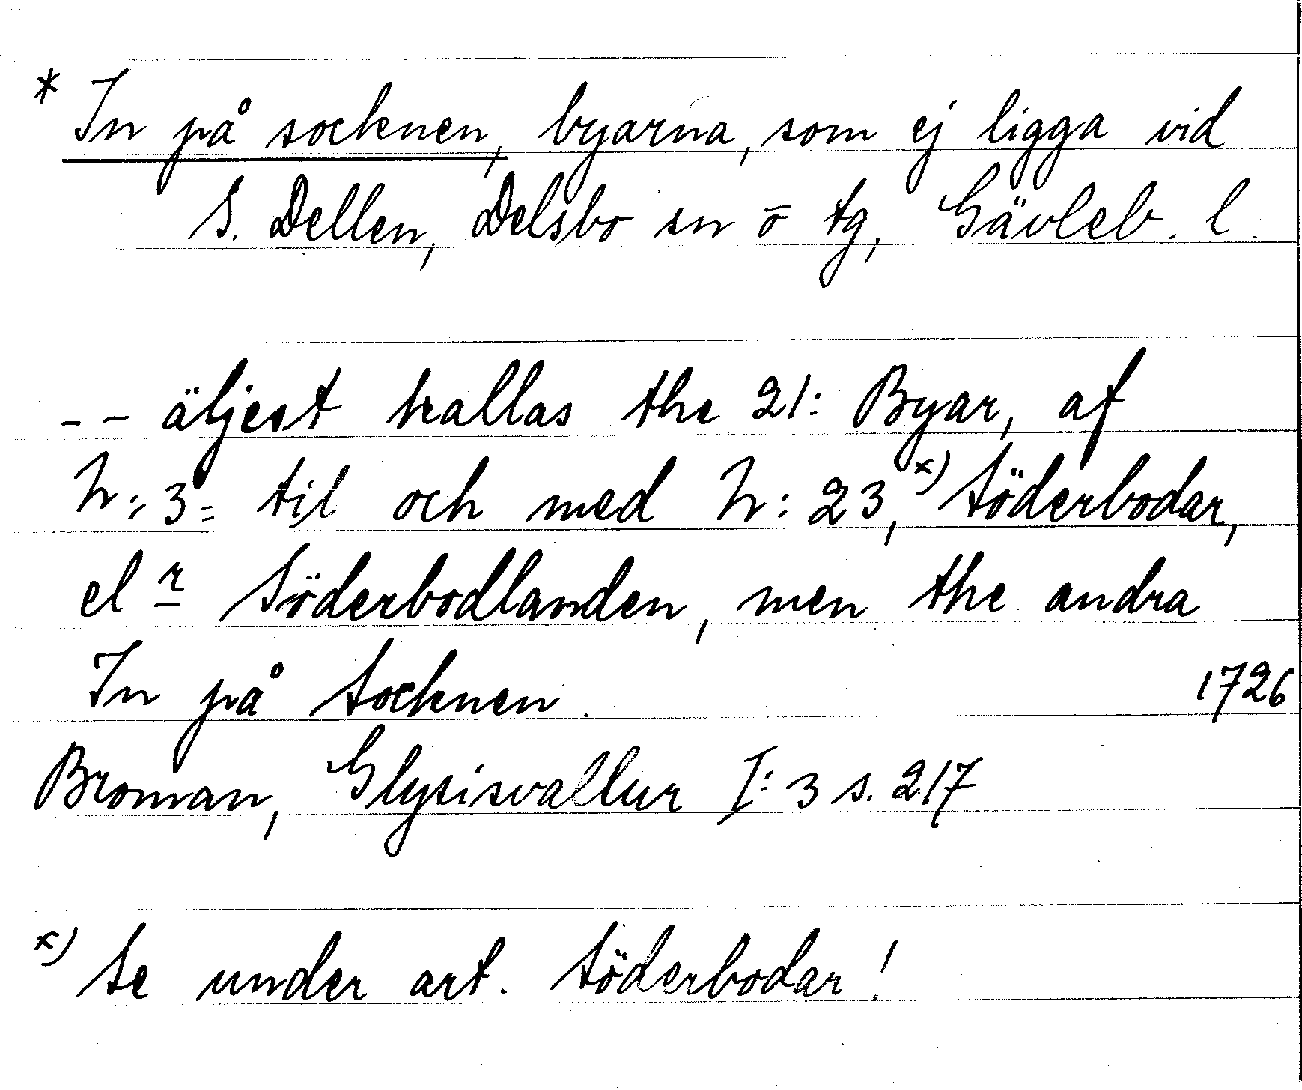 * In på socknen, byarna, som ej ligga vid
S. Dellen, Delsbo sn o tg, Gävleb. l.
-- äljest kallas the 21: Byar, af
N: 3= til och med N: 23,x) Söderbodar,
el r Söderbodlanden, men the andra
In på Socknen. 1726
Broman, Glysisvallur I: 3 s. 217
x) Se under art. Söderbodar!